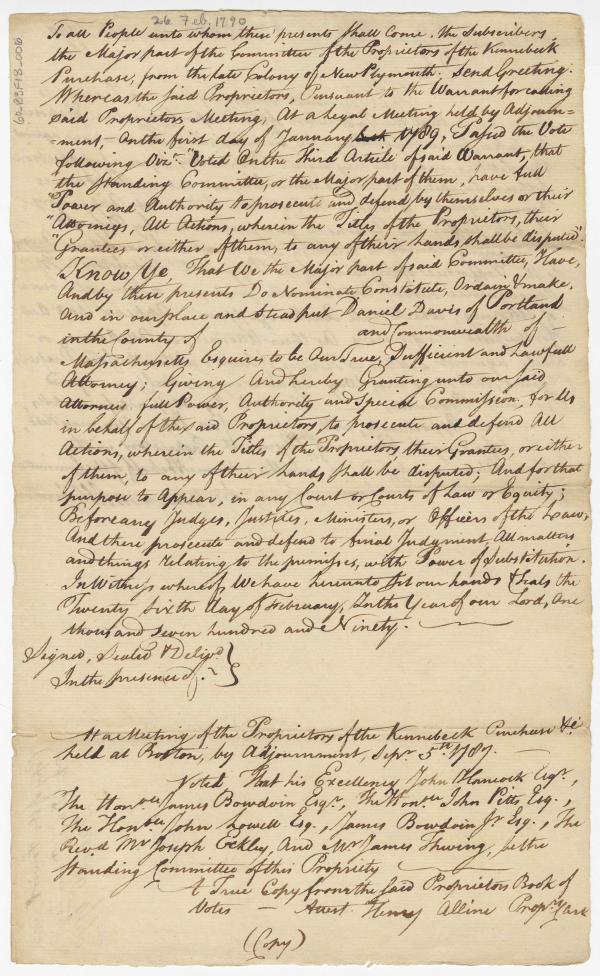 26 Feb. 1790
To all People unto whom these presents Shall Come. the Subscribers,
the Major part of the Committee of the Proprietors of the Kennebeck
Purchase, from the late Colony of New Plymouth. Send Greeting.
Whereas the said Proprietors, Pursuant to the Warrant for calling
said Proprietors Meeting, At a Legal Meeting held by Adjourn=
=ment, On the first day of January 1789, Passed the Vote
following Vizt. "Voted On the Third Article of said Warrant, that
the Standing Committee, or the Major part of them, have full
"Power and Authority to prosecute and defend by themselves or their
"Attorneys, All Actions, wherein the Titles of the Proprietors, their
"Grantees or either of them, to any of their hands, shall be disputed".
Know Ye, That We the Major part of said Committee, Have,
And by these presents Do Nominate Constitute, Ordain & make,
and in our place and Stead put Daniel Davis of Portland
in the County of and Commonwealth of —
Massachusetts Esquires to be Our True, Sufficient and Lawfull
Attorney; Giving And hereby Granting unto our said
Attorneis full Power, Authority and Special Commission, for Us
in behalf of the said Proprietors, to prosecute and defend All
Actions, wherein the Titles of the Proprietors, their Grantees, or either
of them, to any of their hands Shall be disputed; And for that
purpose to Appear, in any Court or Courts of Law or Equity;
Before any Judges, Justices, Ministers, or Officers of the Law,
And there prosecute and defend to final Judgment All matters
and things relating to the premises, with Power of Substitution.
In Witness whereof We have hereunto Set our hands & Seals the
Twenty Sixth day of February, In the Year of our Lord, One
thousand seven hundred and Ninety.
Signed, Sealed & Delivd.
In the presence of.
At a Meeting of the Proprietors of the Kennebeck Purchase &c
held at Boston, by Adjournment, Sepr. 5th 1787. —
Voted That his Excellency John Hancock Esqr.,
The Honble James Bowdoin Esqr., The Honble John Pitts, Esq.,
The Honble John Lowell Esq., James Bowdoin Jr Esq., The
Revd. Mr Joseph Eckley, And Mr James Thwing, be the
Standing Committee of this Propriety
A True Copy from the said Proprietors Book of
Votes — Attest Henry Alline Propr. Clerk
(Copy)